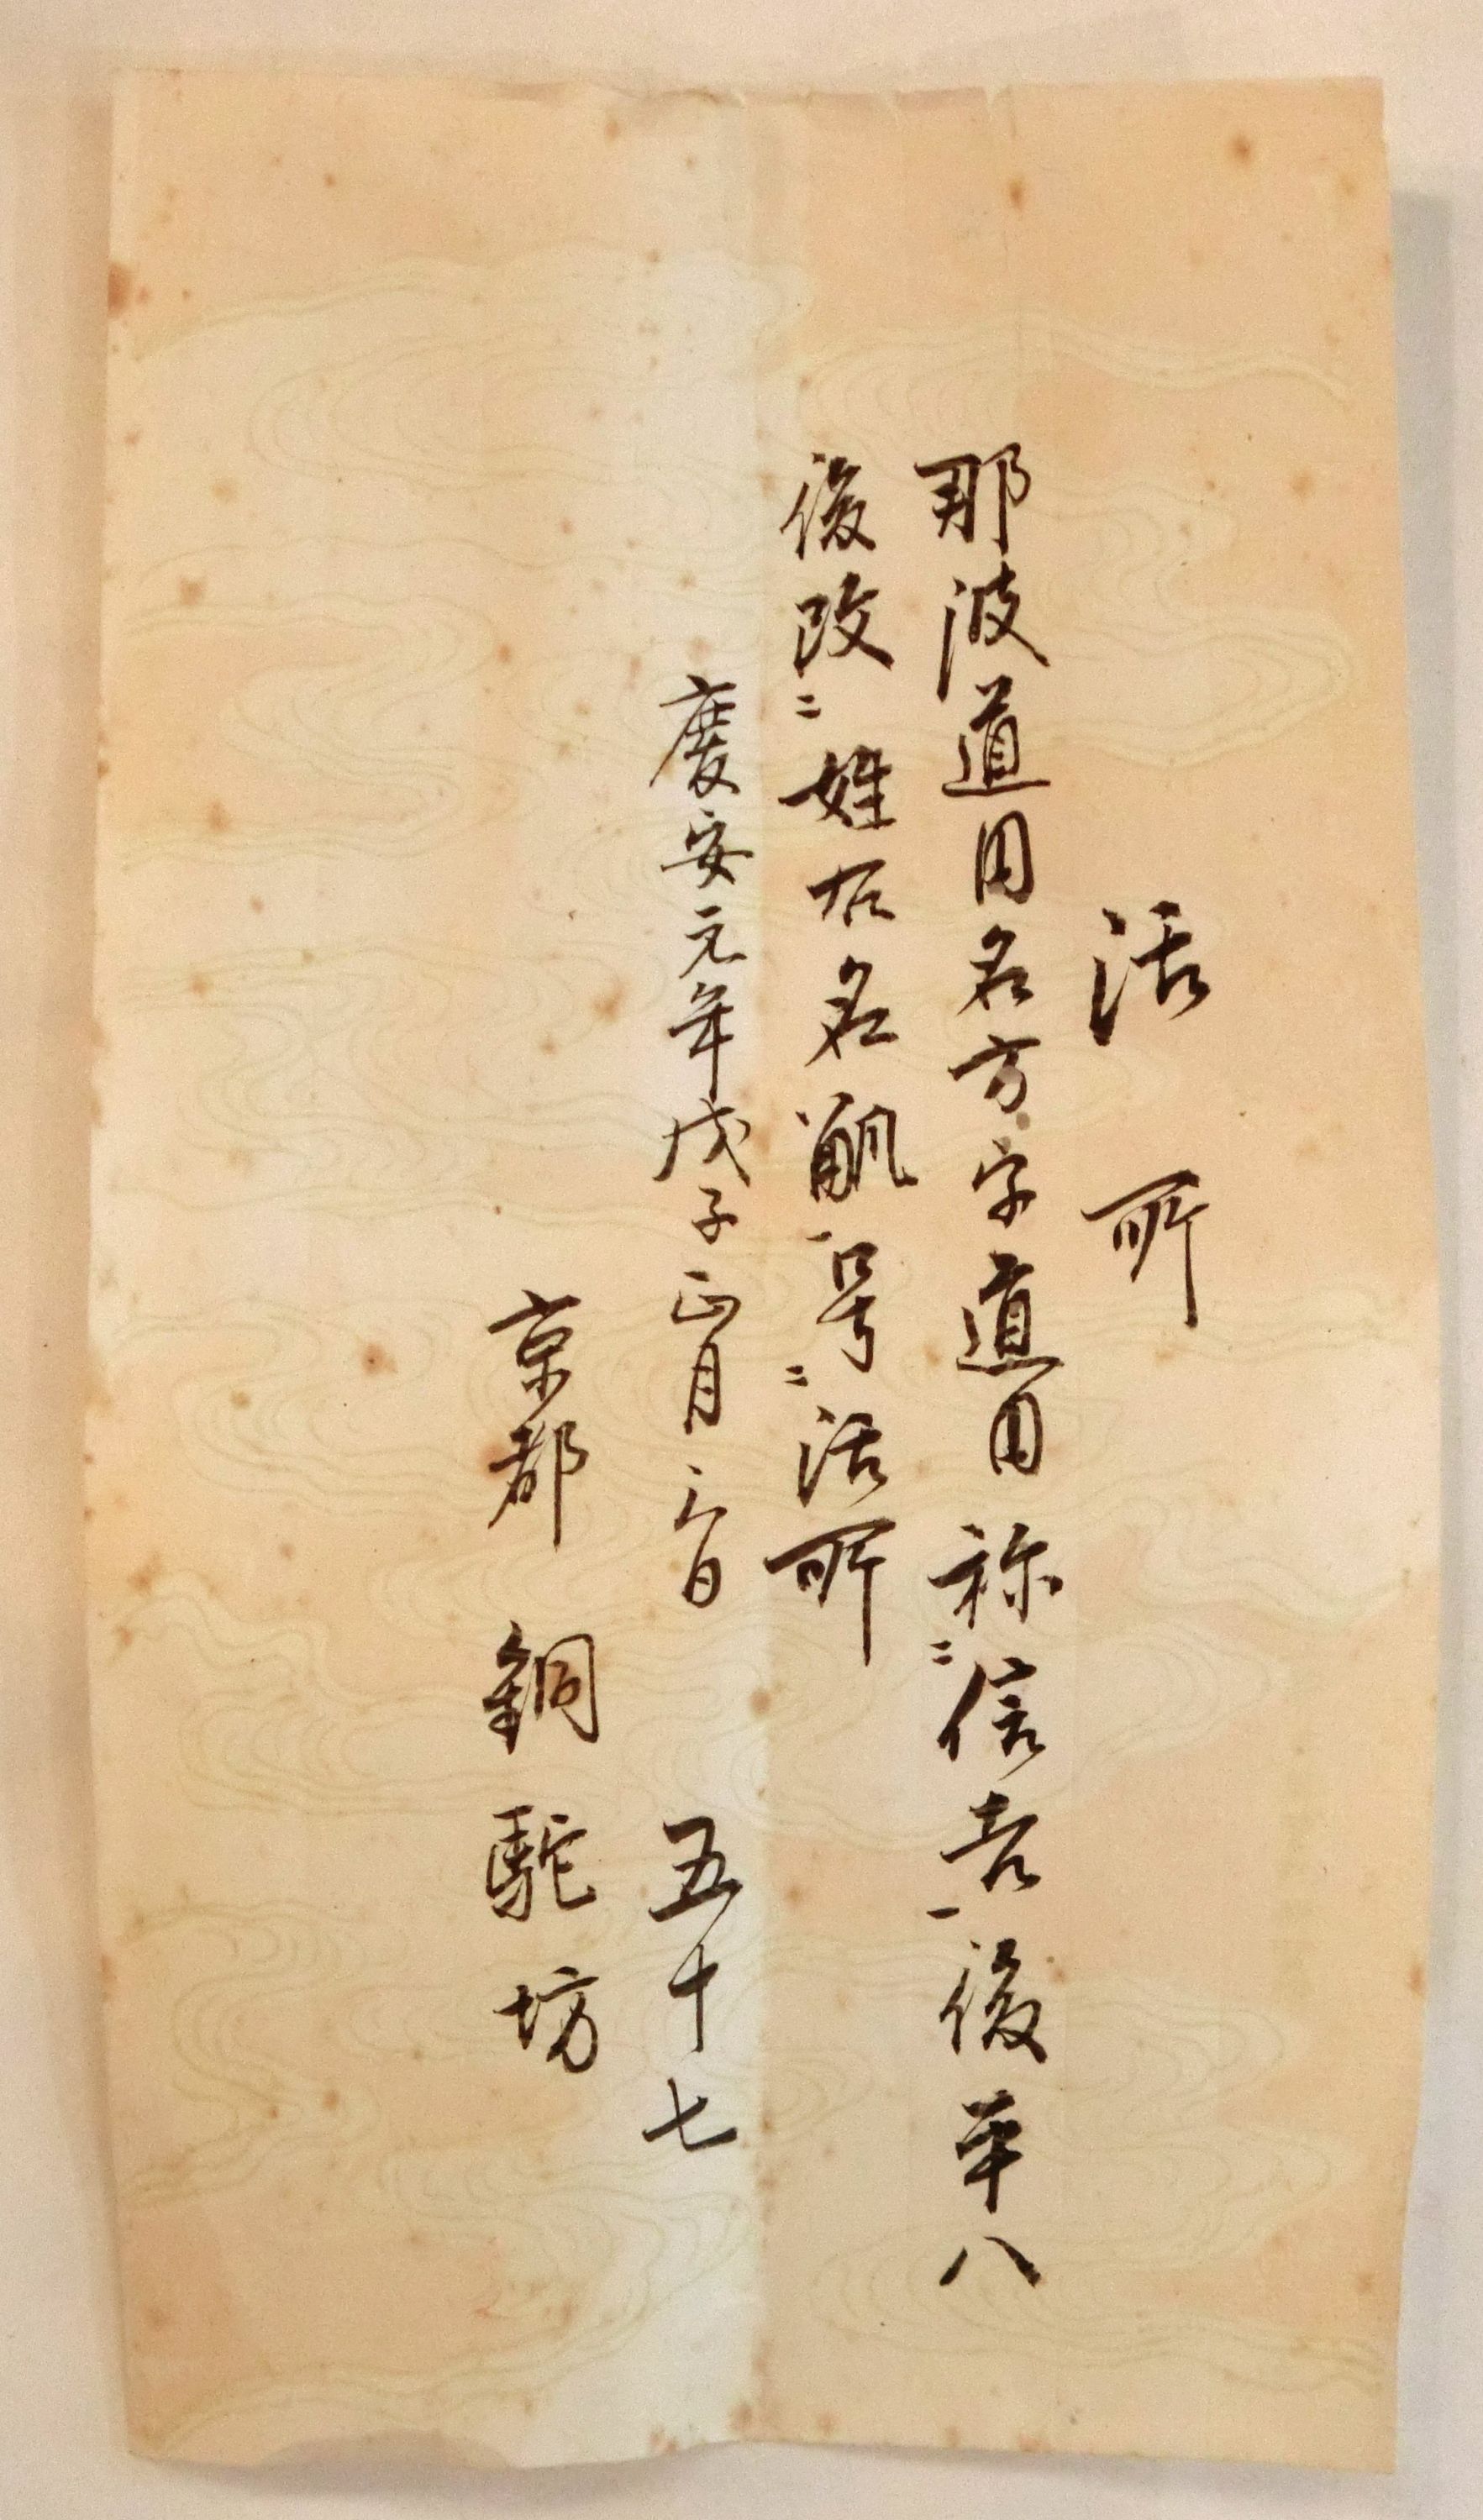 活所
那波道円名方字道円称二信吉一後平八
後改二姓右名觚一号二活所
慶安元年戊子正月三日 五十七
京都 銅駝坊